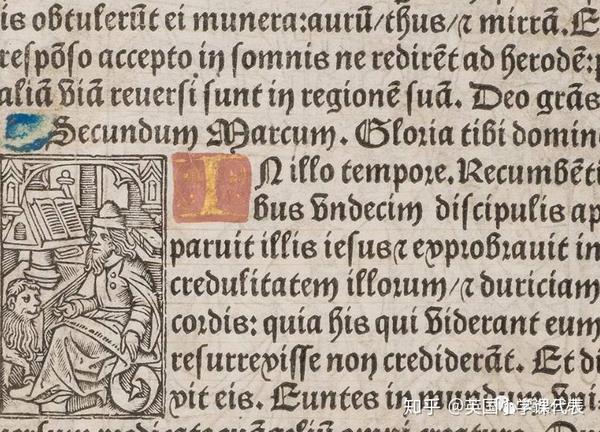 is obtulerūt ei munera:aurū/thus/⁊ mirrā. E
respōso accepto in somnis ne redirēt ad herodē:p
aliā viā reuersi sunt in regionē suā. Deo grās
Secundum Marcum. Gloria tibi domin
IN illo tempore. Recumbēti
bus vndecim discipulis ap
paruit illis iesus ⁊ exprobrauit in
credulitatem illorum/⁊ duriciam
cordis: quia his qui viderant eum
resurrexisse non crediderāt. Et di
xit eis. Euntes in mundum vni-
知乎 @英国小学课代表